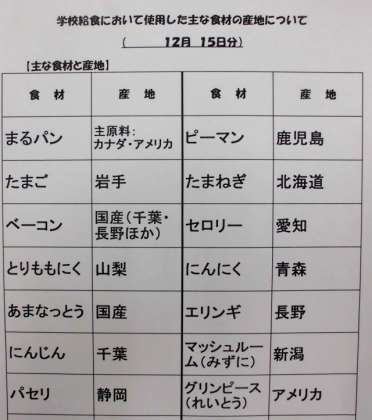 学校給食において使用した主な食材の産地について
(　　　12月　15日分)
【主な食材と産地】
食　材　産　地　食　材　産　地
まるパン　主原料：カナダ・アメリカ　ピーマン　鹿児島
たまご　岩手　たまねぎ　北海道
ベーコン　国産(千葉・長野ほか)　セロリー　愛知
とりももにく　山梨　にんにく　青森
あまなっとう　国産　エリンギ　長野
にんじん　千葉　マッシュルーム(みずに)　新潟
パセリ　静岡　グリンピース(れいとう)　アメリカ